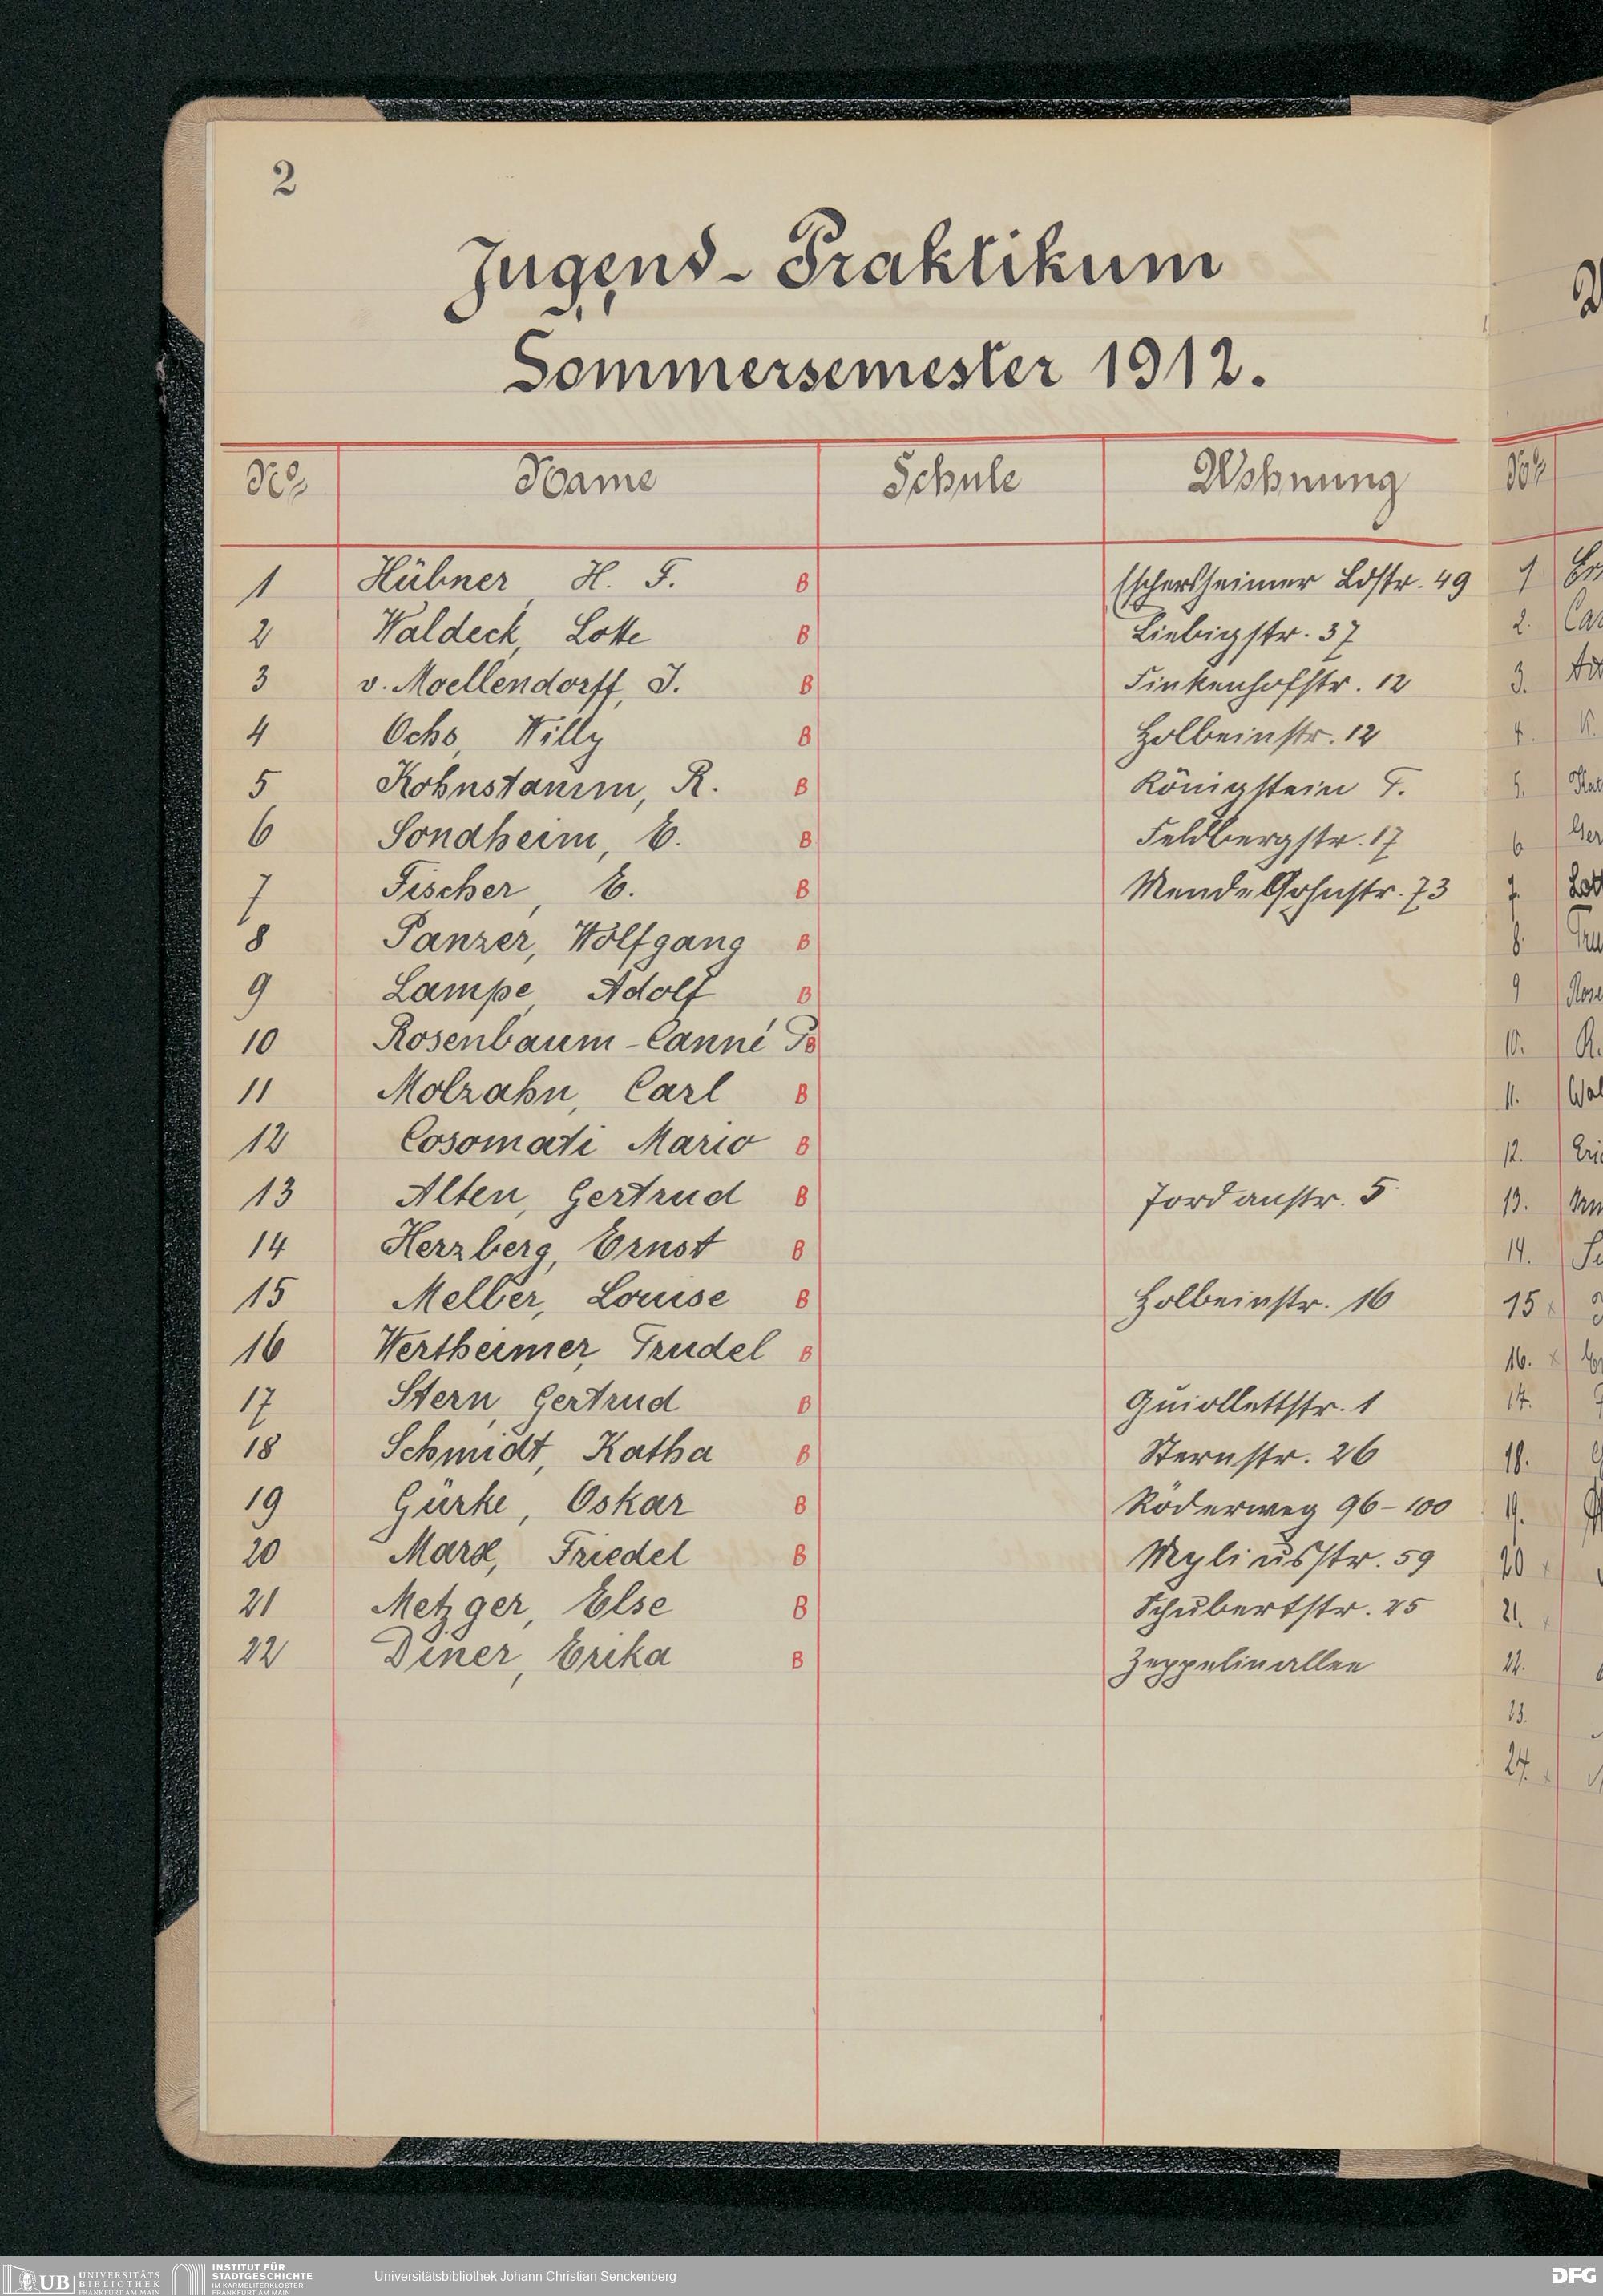 2
Jugend-Praktikum
Sommersemester 1912.
No Name Schule Wohnung
1 Hübner, H. F. B Eschersheimer Ldstr. 49
2 Waldeck, Lotte B Liebigstr. 37
3 v. Moellendorff, J. B Finkenhofstr. 12
4 Ochs, Willy B Holbeinstr. 12
5 Kohnstamm, R. B Königstein T.
6 Sondheim, E. B Feldbergstr. 17
7 Fischer, E. B Mendelsohnstr. 73
8 Panzer, Wolfgang B
9 Lampe, Adolf B
10 Rosenbaum-Canné P. B
11 Molzahn, Carl B
12 Cosomati Mario B
13 Alten, Gertrud B Jordanstr. 5
14 Herzberg, Ernst B
15 Melber, Louise B Holbeinstr. 16
16 Wertheimer, Trudel B
17 Stern, Gertrud B Guiollettstr. 1
18 Schmidt, Katha B Sternstr. 26
19 Gürke, Oskar B Röderweg 96-100
20 Marx, Friedel B Myliusstr. 59
21 Metzger, Else B Schubertstr. 25
22 Diner, Erika B Zeppelinallee
No
1
2.
3.
4.
5.
6
7.
8.
9
10.
11.
12.
13.
14.
15
16.
17.
18.
19.
20
21.
22.
23.
24.
UB UNIVERSITÄTS
BIBLIOTHEK
FRANKFURT AM MAIN
INSTITUT FÜR
STADTGESCHICHTE
IM KARMELITERKLOSTER
FRANKFURT AM MAIN
Universitätsbibliothek Johann Christian Senckenberg
DFG